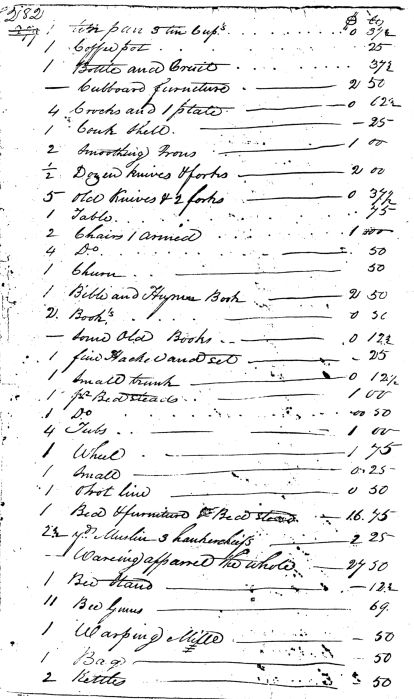 282 $ cts
277 1 tin pan 3 tin Cups 0 37½
1 Coffee pot 25
1 Bottle and Cruit 37½
— Cubboard furniture 2 50
4 Crocks and 1 plate 0 62½
1 Conk Shell — 25
2 Smoothing Irons 1 00
½ Dozen knives & forks 2 00
5 old Knives & 2 forks 0 37½
1 Table 75
2 Chairs 1 armed 1 00
4 Do 50
1 Churn 50
1 Bible and Hymn Book 2 50
2 Books 0 50
— Some Old Books 0 12½
1 fine Hackel and set — 25
1 Small trunk 0 12½
1 pr Bed steads 1 00
1 Do 00 50
4 Tubs 1 00
1 Wheel 1 75
1 Small 0 25
1 trot line 0 50
1 Bed & furniture & Bed stead 16 75
2½ yds Muslin 3 hankercheifs 2 25
— Wareing apparrel the whole 27 50
1 Bee Stand — 12½
11 Bee Gums 69
1 Warping Mille — 50
1 Bag — 50
2 Kettles 3 50